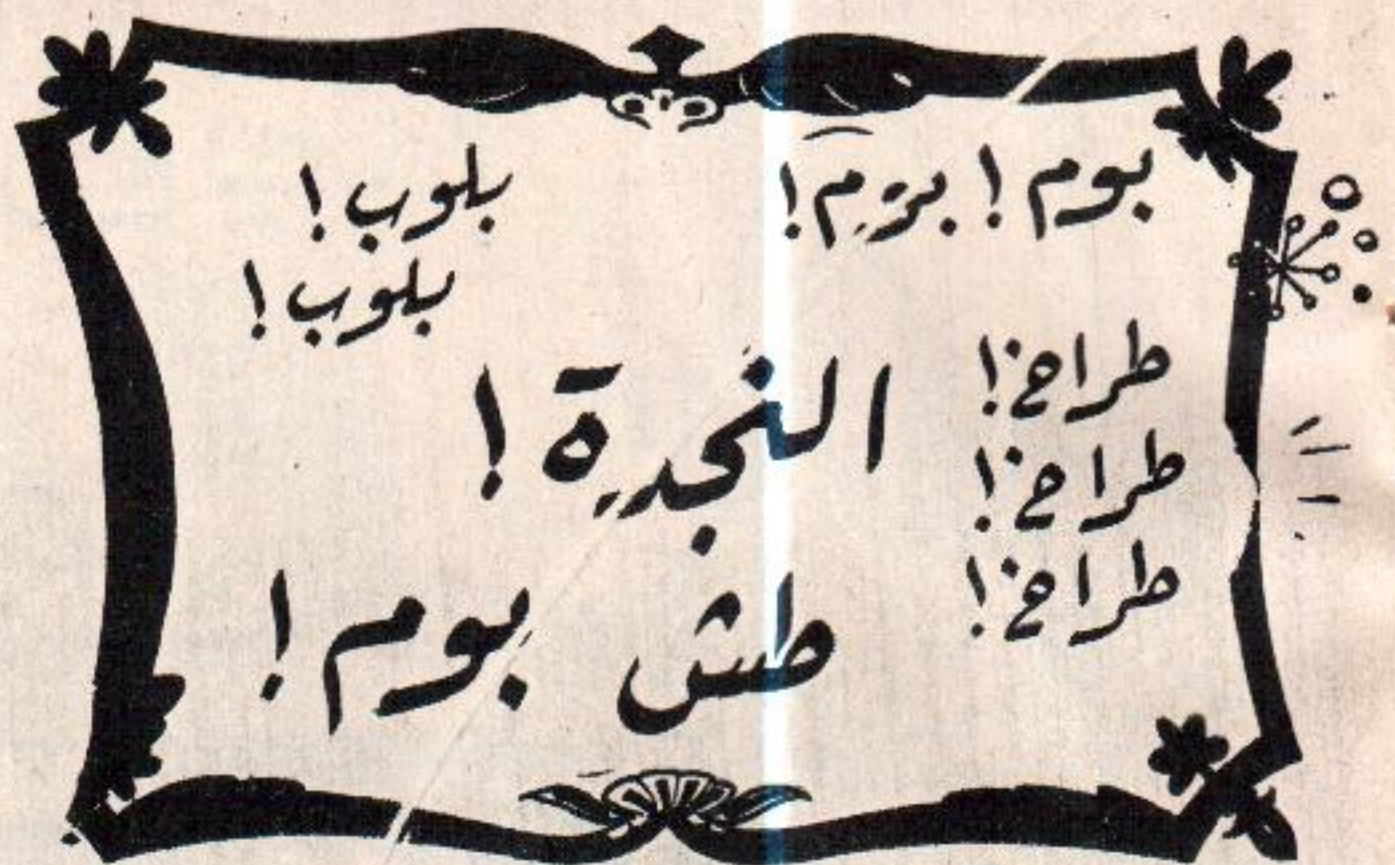 بوم! بوم!
بلوب!
بلوب!
طراخ!
طراخ!
طراخ!
النجدة!
طش بوم!